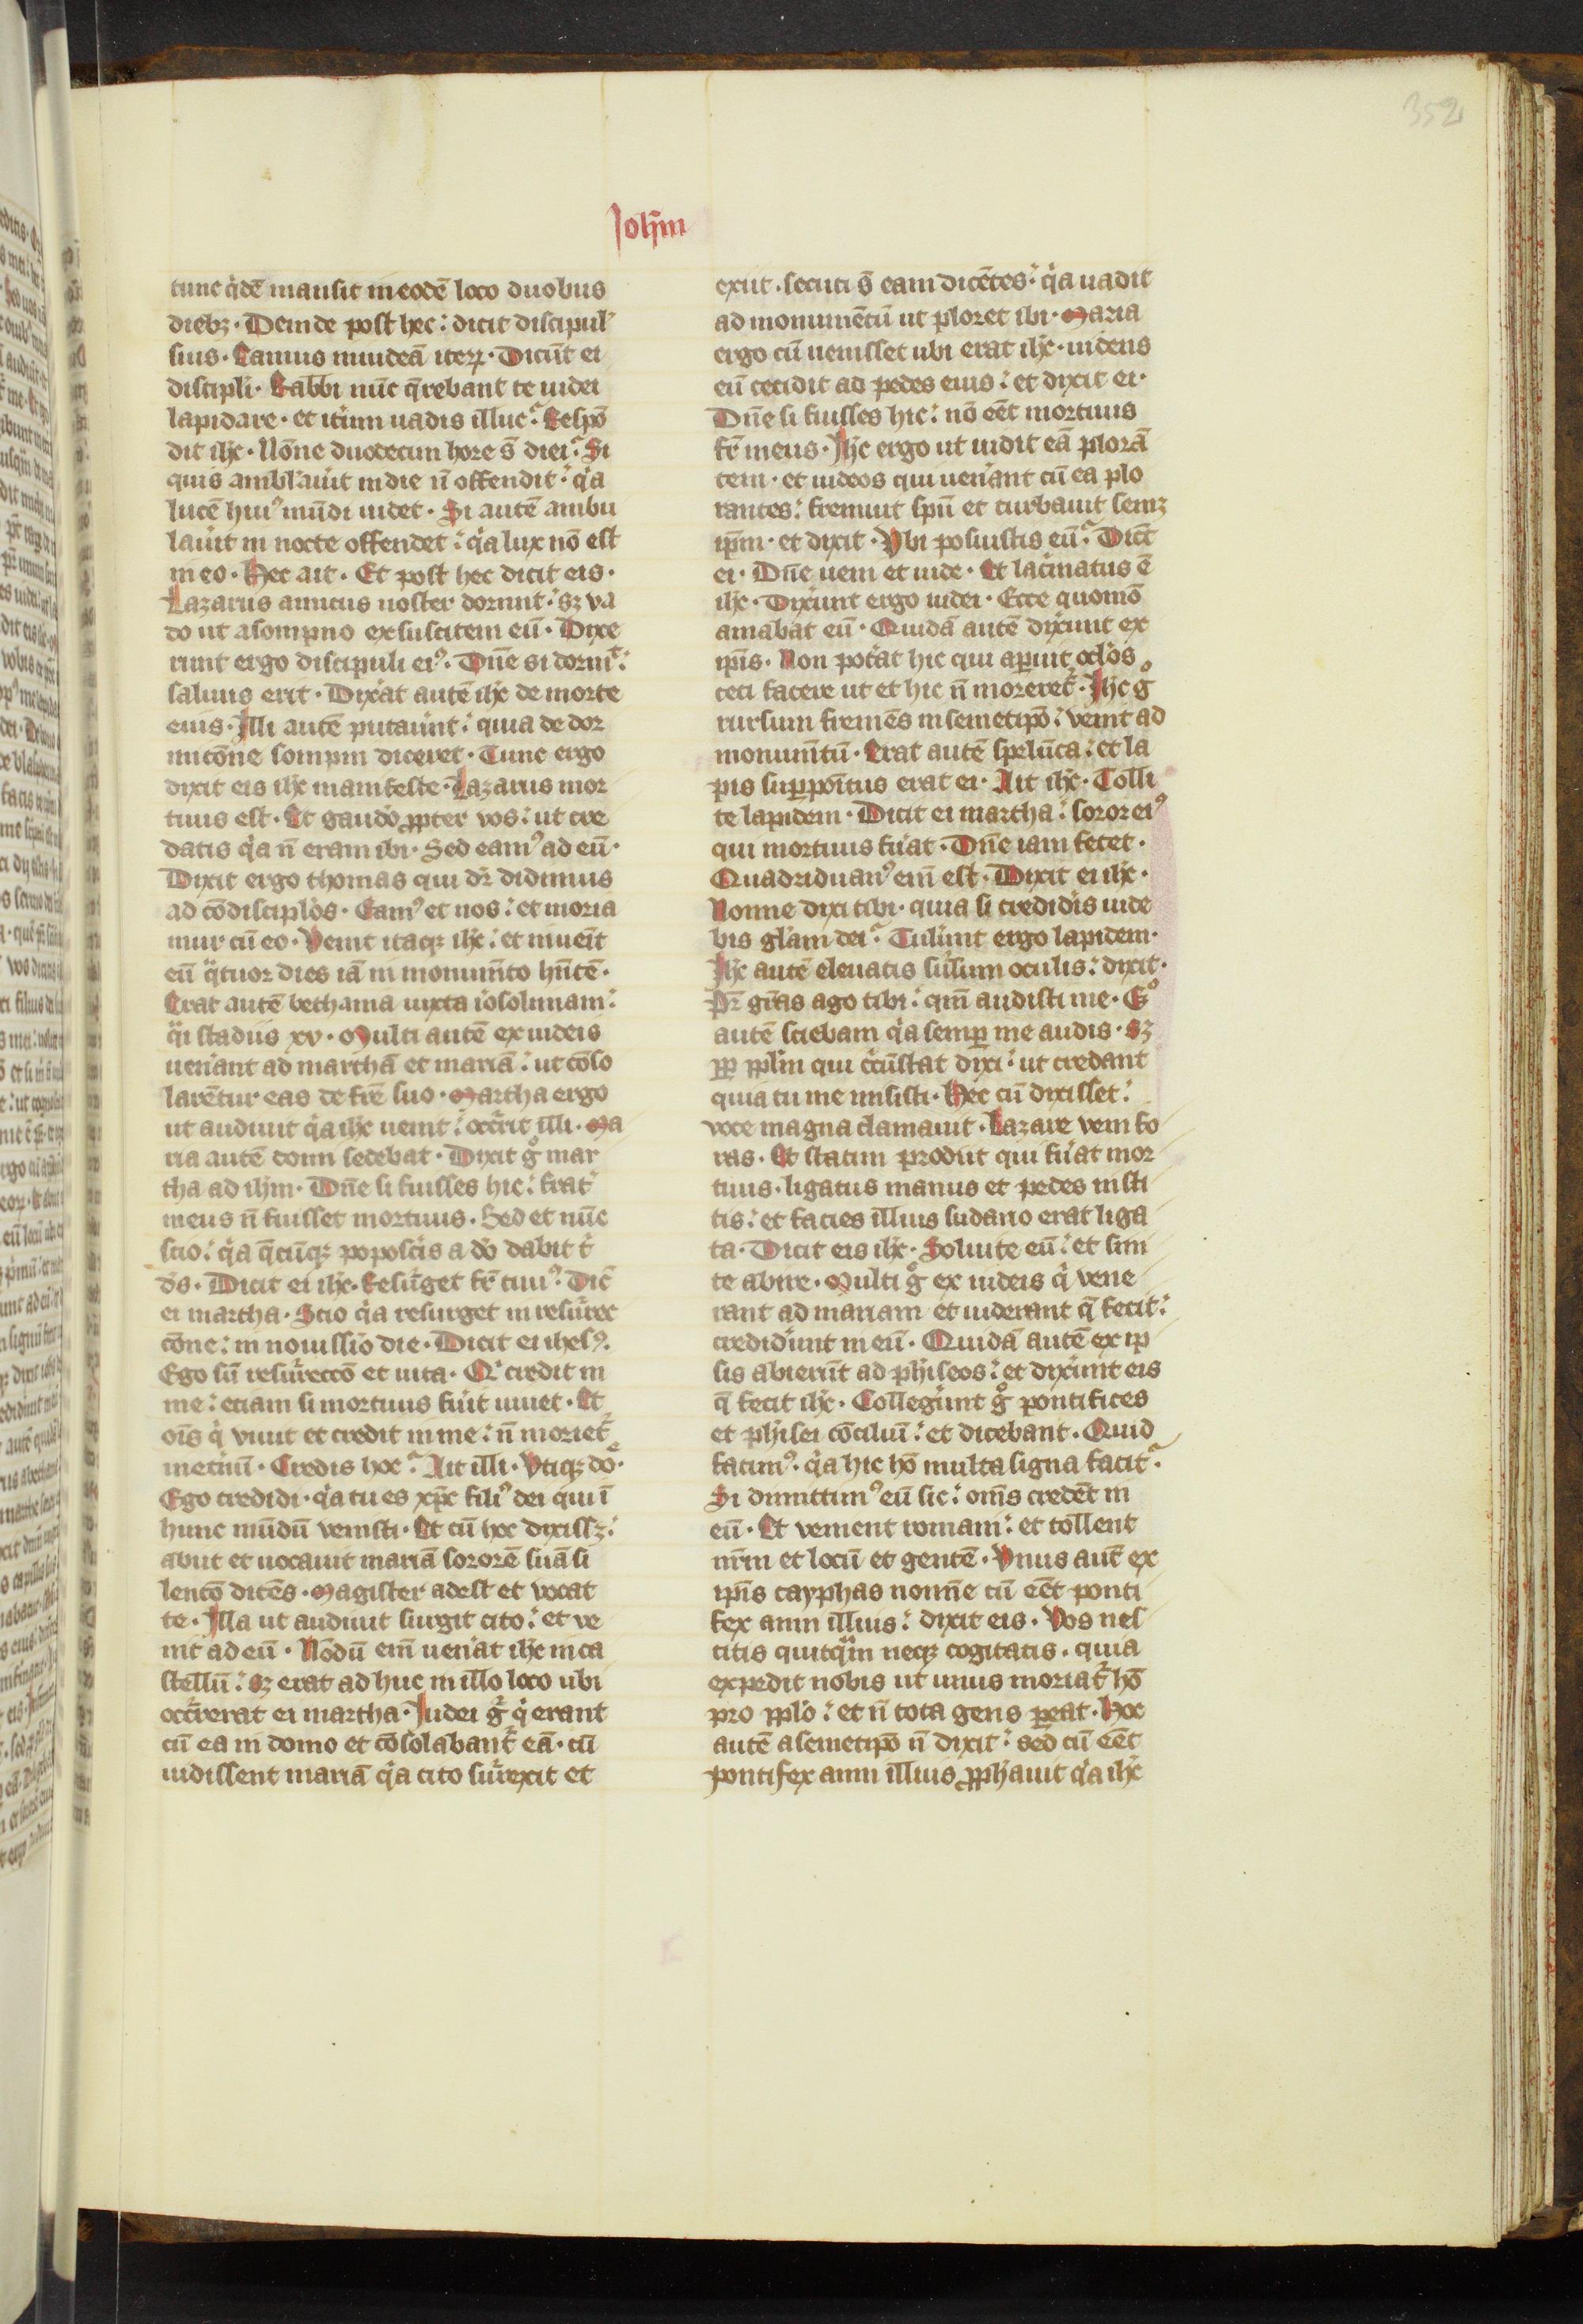 352
Ioh̅m
tunc q̍dē mansit in eodē loco duobus
dieb; · Deinde post hec : dicit discipul᾿
suis · Eamus in iudeā iterꝝ · Dicūt ei
discipli · Rabbi nūc q̄rebant te iudei
lapidare · et it̍um uadis illuc ? Respō
dit ih̅c · Nōne duodecim hore s̄ diei ? Si
quis ambl̍auit in die n̄ offendit : q̍a
lucē hui᾿ mūdi uidet · Si autē ambu
lau̍it in nocte offendet : q̍a lux nō est
in eo · Hec ait · Et post hec dicit eis ·
Lazarus amicus noster dormit : s; va
do ut a sompno exsuscitem eū · Dixe
runt ergo discipuli ei᾿ · Dn̄e si dormt̍ :
saluus erit · Dix̍at autē ih̅c de morte
eius · Illi autē putau̍nt : quia de dor
mitōne sompni diceret · Tunc ergo
dixit eis ih̅c manifeste · Lazarus mor
tuus est · Et gaudo ꝓpter vos : ut cre
datis q̍a n̄ eram ibi · Sed eam᾿ ad eū ·
Dixit ergo thomas qui dr̄ didimus
ad cōdiscipl̍os · Eam᾿ et nos : et moria
mur cū eo · Venit itaq; ih̅c : et inuen̄it
eū q̈tuor dies iā in monum̄to hn̄tē ·
Erat autē bethania iuxta i̍osolimam :
q̈i stadiis xv · Multi autē ex iudeis
uen̍ant ad marthā et mariā : ut cōso
larētur eas de fr̄e suo · Martha ergo
ut audiuit q̍a ih̅c uenit : occ̍rit illi · Ma
ria autē domi sedebat · Dixit g̊ mar
tha ad ih̅m · Dn̄e si fuisses hic : frat̍
meus n̄ fuisset mortuus · Sed et nūc
scio : q̍a q̄cūq; poposc̍is a do̍ dabit t̍
ds̍ · Dicit ei ih̅c · Resu̍get fr̄ tuu᾿ · Dic̄
ei martha · Scio q̍a resurget in resu̍rec
cōne : in nouissīo die · Dicit ei ihes᾿ ·
Ego sū resu̍reccō et uita · Q̍ credit in
me : etiam si mortuus fu̍it uiuet · Et
oīs q̍ viuit et credit in me : n̄ moriet̍
inet̍nū · Credis hoc ? Ait illi · Vtiq; dō ·
Ego credidi · q̍a tu es xp̄c fili᾿ dei qui ī
hunc mūdū venisti · Et cū hoc dixiss; :
abiit et uocauit mariā sororē suā si
lentō dicēs · Magister adest et vocat
te · Illa ut audiuit surgit cito : et ve
nit ad eū · Nōdū em̄ uen̍at ih̅c in ca
stellū : s; erat ad huc in illo loco ubi
occ̍rerat ei martha · Iudei g̊ q̍ erant
cū ea in domo et cōsolabant̍ eā · cū
uidissent mariā q̍a cito su̍rexit et
exiit · secuti s̄ eam dicētes : q̍a uadit
ad monumētū ut ploret ibi · Maria
ergo cū uenisset ubi erat ih̅c · uidens
eū cecidit ad pedes eius : et dixit ei ·
Dn̄e si fuisses hic : nō eēt mortuus
fr̄ meus · Ih̅c ergo ut uidit eā plorā
tem · et iudeos qui uen̍ant cū ea plo
rantes : fremuit spū et turbauit sem;
ip̄m · et dixit · Vbi posuistis eū ? Dicūt
ei · Dn̄e ueni et uide · Et lac̍matus ē
ih̅c · Dix̍unt ergo iudei · Ecce quomō
amabat eū · Quidā autē dix̍unt ex
ip̄is · Non pot̍at hic qui aꝑuit ocl̍os
ceci facere ut et hic n̄ moreret̍ · Ih̅c g̊
rursum fremēs in semetip̄o : venit ad
monum̄tū · Erat autē spelūca : et la
pis suꝑpoītus erat ei · Ait ih̅c · Tolli
te lapidem · Dicit ei martha : soror ei᾿
qui mortuus fu̍at · Dn̄e iam fetet ·
Quadriduan᾿ em̄ est · Dixit ei ih̅c ·
Nonne dixi tibi · quia si credid̍is uide
bis gl̍am dei ? Tul̍unt ergo lapidem ·
Ih̅c autē eleuatis su̍sum oculis : dixit ·
Pr̄ gr̄as ago tibi : qm̄ audisti me · Eg̊
autē sciebam q̍a semꝑ me audis · S;
ꝓp ppl̍m qui circūstat dixi : ut credant
quia tu me misisti · Hec cū dixisset :
voce magna clamauit · Lazare veni fo
ras · Et statim prodiit qui fu̍at mor
tuus · ligatus manus et pedes insti
tis : et facies illius sudario erat liga
ta · Dicit eis ih̅c · Soluite eū : et sini
te abire · Multi g̊ ex iudeis q̍ vene
rant ad mariam et uiderant q̄ fecit :
credid̍unt in eū · Quidā autē ex ip
sis abierūt ad phīseos : et dix̍unt eis
q̄ fecit ih̅c · Colleg̍unt g̊ pontifices
et phīsei cōciliuī : et dicebant · Quid
facim᾿ · q̍a hic hō multa signa facit ?
Si dimittim᾿ eū sic : om̄s credēt in
eū · Et venient romani : et tollent
nr̄m et locū et gentē · Vnus aut̄ ex
ip̄is cayphas nomīe cū eēt ponti
fex anni illius : dixit eis · Vos nes
citis quitq̄m neq; cogitatis · quia
expedit nobis ut unus moriat̍ hō
pro ppl̍o : et n̄ tota gens ꝑeat · Hoc
autē a semetip̄o n̄ dixit : sed cū eēt
pontifex anni illius ꝓph̄auit q̍a ih̅c